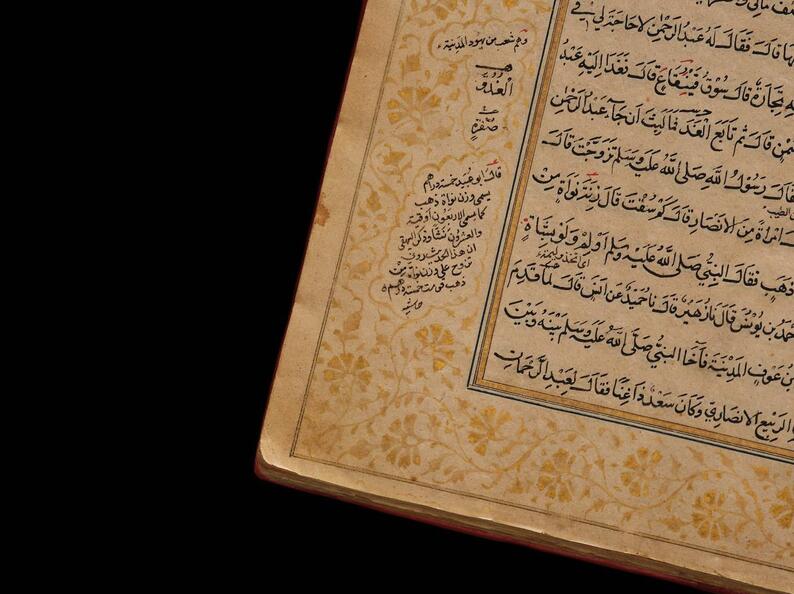 نصف مالي و
فقال له عبد الرحمن لا حاجة لي في
تجارة قال سوق قينقاع قال فغدا اليه عبد
قال ثم تابع الغد فما لبث ان جاء عبد الرحمن
فقال رسول الله صلى الله عليه وسلم تزوجت قال
امراة من الانصار قال كم سقت قال زنة نواة من
ذهب فقال النبي صلى الله عليه وسلم اولم ولو بشاة
بن يونس قال نا زهير قال نا حميد عن انس قال لما قدم
بن عوف المدينة فآخا النبي صلى الله عليه وسلم بينه وبين
الربيع الانصاري وكان سعد ذا غنا فقال لعبد الرحمان
وهم شعب من يهود المدينة
الغدو
صفرة
قال ابو عبيد خمسة دراهم
يسمى وزن نواة ذهب
كما يسمى الاربعون اوقية
والعشرون نشا وذكر البيهقي
ان هذا الحديث روي
تزوج على وزن نواة من
ذهب قومت خمسة دراهم
حاشية